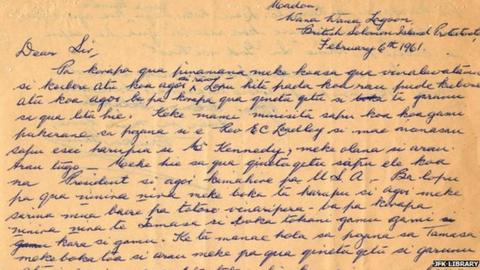 Madou,
Wana Wana Lagoon,
British Solomon Island Protectorate
February 6th 1961.
Dear Sir,
Pa korapa qua pinamana meke koasa qua vinabalabatu
si kubere atu koa agoi si rau Lopu hite pada koa rau pude kubere
atu koa agoi ba pa korapa qua ginetu getu si boka te garunu
se qua leta hie. Keke mami minisita sapu koa koa gami
pukerane si pozana si e Rev E.C. Leadley si mae
sapu esei harupia se Mr Kennedy, meke olana si arau.
Arau tugo — Meke hie sa qua ginetugetu sapu ele koa
na President si agoi kinahine pa U S A. Ba lopu
pa qua ninina nina meke boka te harupu si agoi meke
sarina mua bare pa totoso vinaripera. ba pa korapa
ninina nina te Tamasa si boka tokani gamu gami
kara si gamu. Ke ta manae hola sa pozana sa Tamasa
meke boka taa si arau meke pa qua ginetugetu si garunu
JFK-LIBRARY